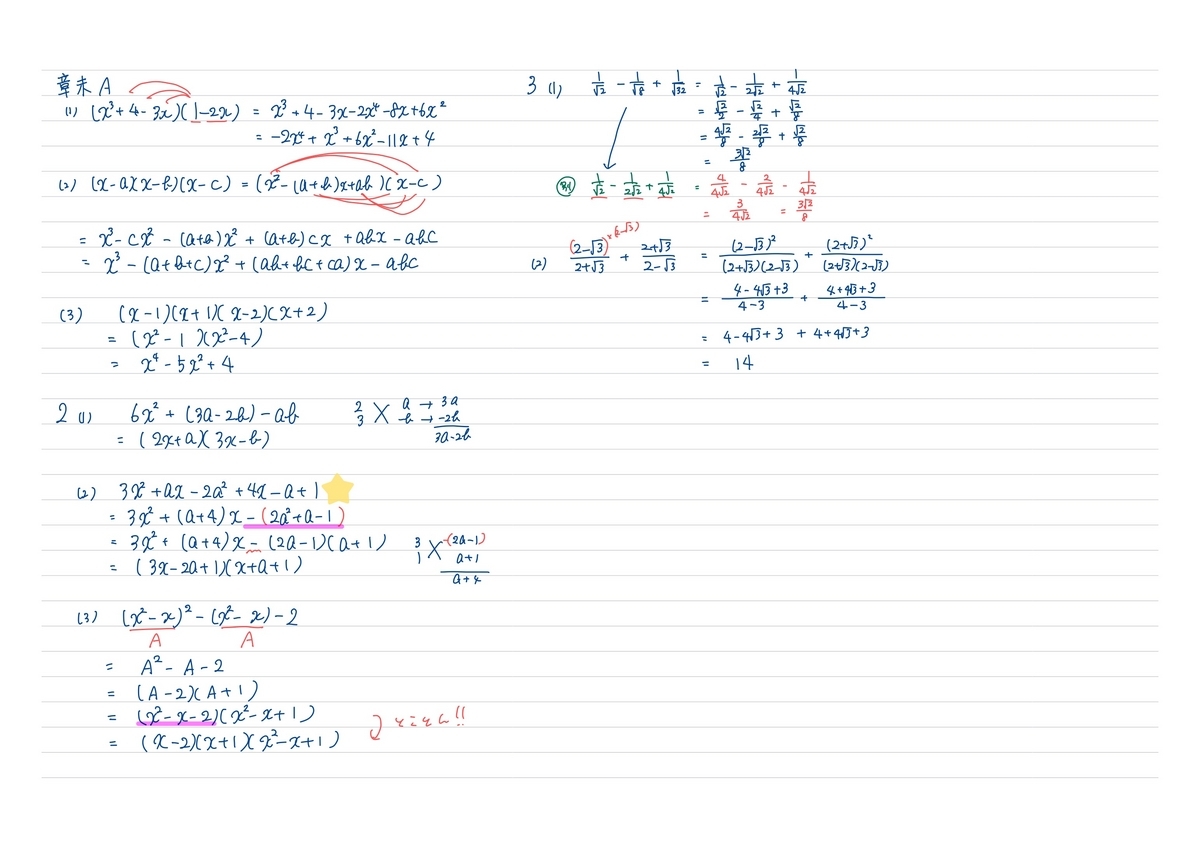 章末 A
(1) (x³+4-3x)(1-2x) = x³+4-3x-2x⁴-8x+6x²
= -2x⁴+x³+6x²-11x+4
(2) (x-a)(x-b)(x-c) = (x²-(a+b)x+ab)(x-c)
= x³-cx²-(a+b)x²+(a+b)cx+abx-abc
= x³-(a+b+c)x²+(ab+bc+ca)x-abc
(3) (x-1)(x+1)(x-2)(x+2)
= (x²-1)(x²-4)
= x⁴-5x²+4
2 (1) 6x²+(3a-2b)-ab
2 a → 3a
3 -b → -2b
3a-2b
= (2x+a)(3x-b)
(2) 3x²+ax-2a²+4x-a+1
= 3x²+(a+4)x-(2a²+a-1)
= 3x²+(a+4)x-(2a-1)(a+1)
3 -(2a-1)
1 a+1
a+4
= (3x-2a+1)(x+a+1)
(3) (x²-x)²-(x²-x)-2
A A
= A²-A-2
= (A-2)(A+1)
= (x²-x-2)(x²-x+1)
とことん!!
= (x-2)(x+1)(x²-x+1)
3 (1) 1/√2 - 1/√8 + 1/√32 = 1/√2 - 1/2√2 + 1/4√2
= √2/2 - √2/4 + √2/8
= 4√2/8 - 2√2/8 + √2/8
= 3√2/8
別 1/√2 - 1/2√2 + 1/4√2 = 4/4√2 - 2/4√2 - 1/4√2
= 3/4√2 = 3√2/8
×(2-√3)
(2) (2-√3)/2+√3 + 2+√3/2-√3 = (2-√3)²/(2+√3)(2-√3) + (2+√3)²/(2+√3)(2-√3)
= 4-4√3+3/4-3 + 4+4√3+3/4-3
= 4-4√3+3 + 4+4√3+3
= 14